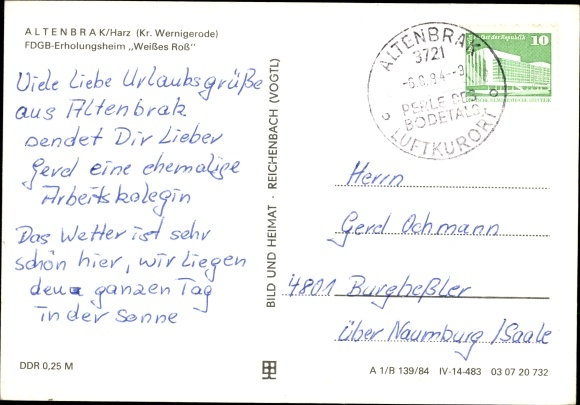 ALTENBRAK/Harz (Kr. Wernigerode)
FDGB-Erholungsheim „Weißes Roß"
Viele Liebe Urlaubsgrüße
aus Altenbrak
sendet Dir Lieber
Gerd eine ehemalige
Arbeitskolegin
Das Wetter ist sehr
schön hier, wir liegen
den ganzen Tag
in der Sonne
DDR 0,25 M
BILD UND HEIMAT · REICHENBACH (VOGTL)
ALTENBRAK
3721
PERLE DES
BODETALS
LUFTKURORT
10
Herrn
Gerd Ochmann
4801 Burgheßler
über Naumburg/Saale
A 1/B 139/84 IV-14-483 03 07 20 732